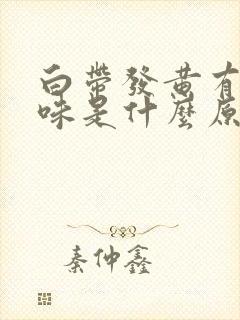 白帶發黃有
味是什麼原
秦仲鑫